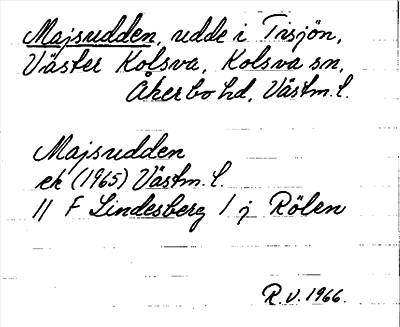 Majsudden, udde i Trisjön,
Väster Kolsva, Kolsva sn,
Åkerbo hd, Västm. l.
Majsudden
ek (1965) Västm. l.
11 F Lindesberg 1 j Rölen
R.V. 1966.